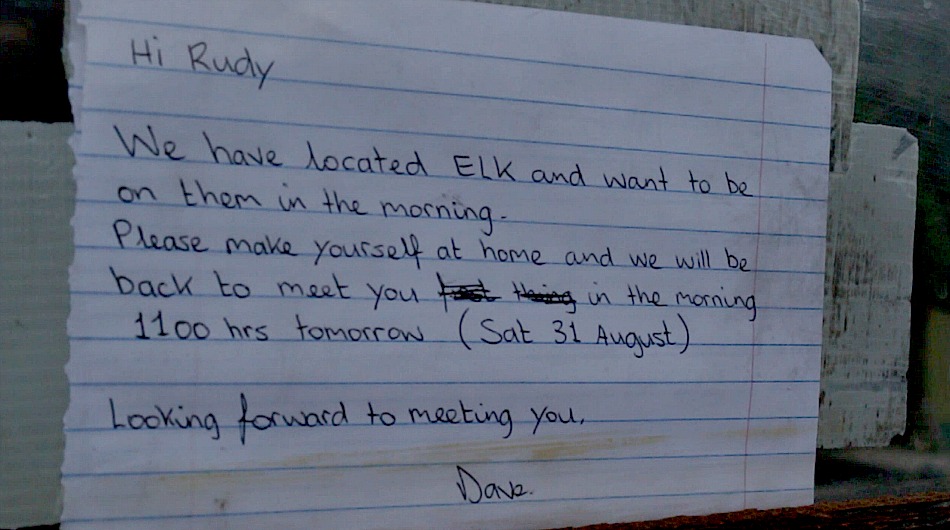 Hi Rudy
We have located ELK and want to be
on them in the morning.
Please make yourself at home and we will be
back to meet you in the morning
1100 hrs tomorrow (Sat 31 August)
Looking forward to meeting you.
Dave.